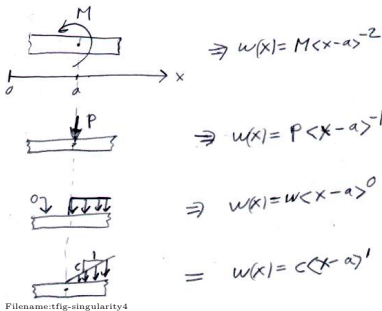 M
⇒ w(x) = M<x-a>⁻²
0 a x
P
⇒ w(x) = P<x-a>⁻¹
0
⇒ w(x) = w<x-a>⁰
c 1
= w(x) = c<x-a>¹
Filename:tfig-singularity4